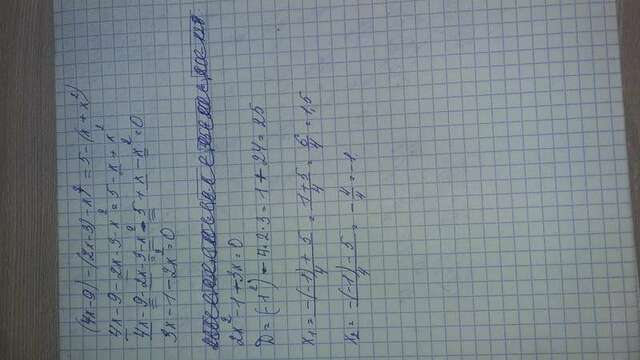 (4x-9)-(2x-3)-x²=5-(x+x²)
4x-9-2x-3-x²=5-x+x²
4x-9-2x-3-x²-5+x-x²=0
3x-1-2x²=0
2x²-1+3x=0
D=(-1²)-4·2·3=1+24=25
x₁=-(-1)+5/4=1+5/4=6/4=1,5
x₂=-(-1)-5/4=-4/4=-1